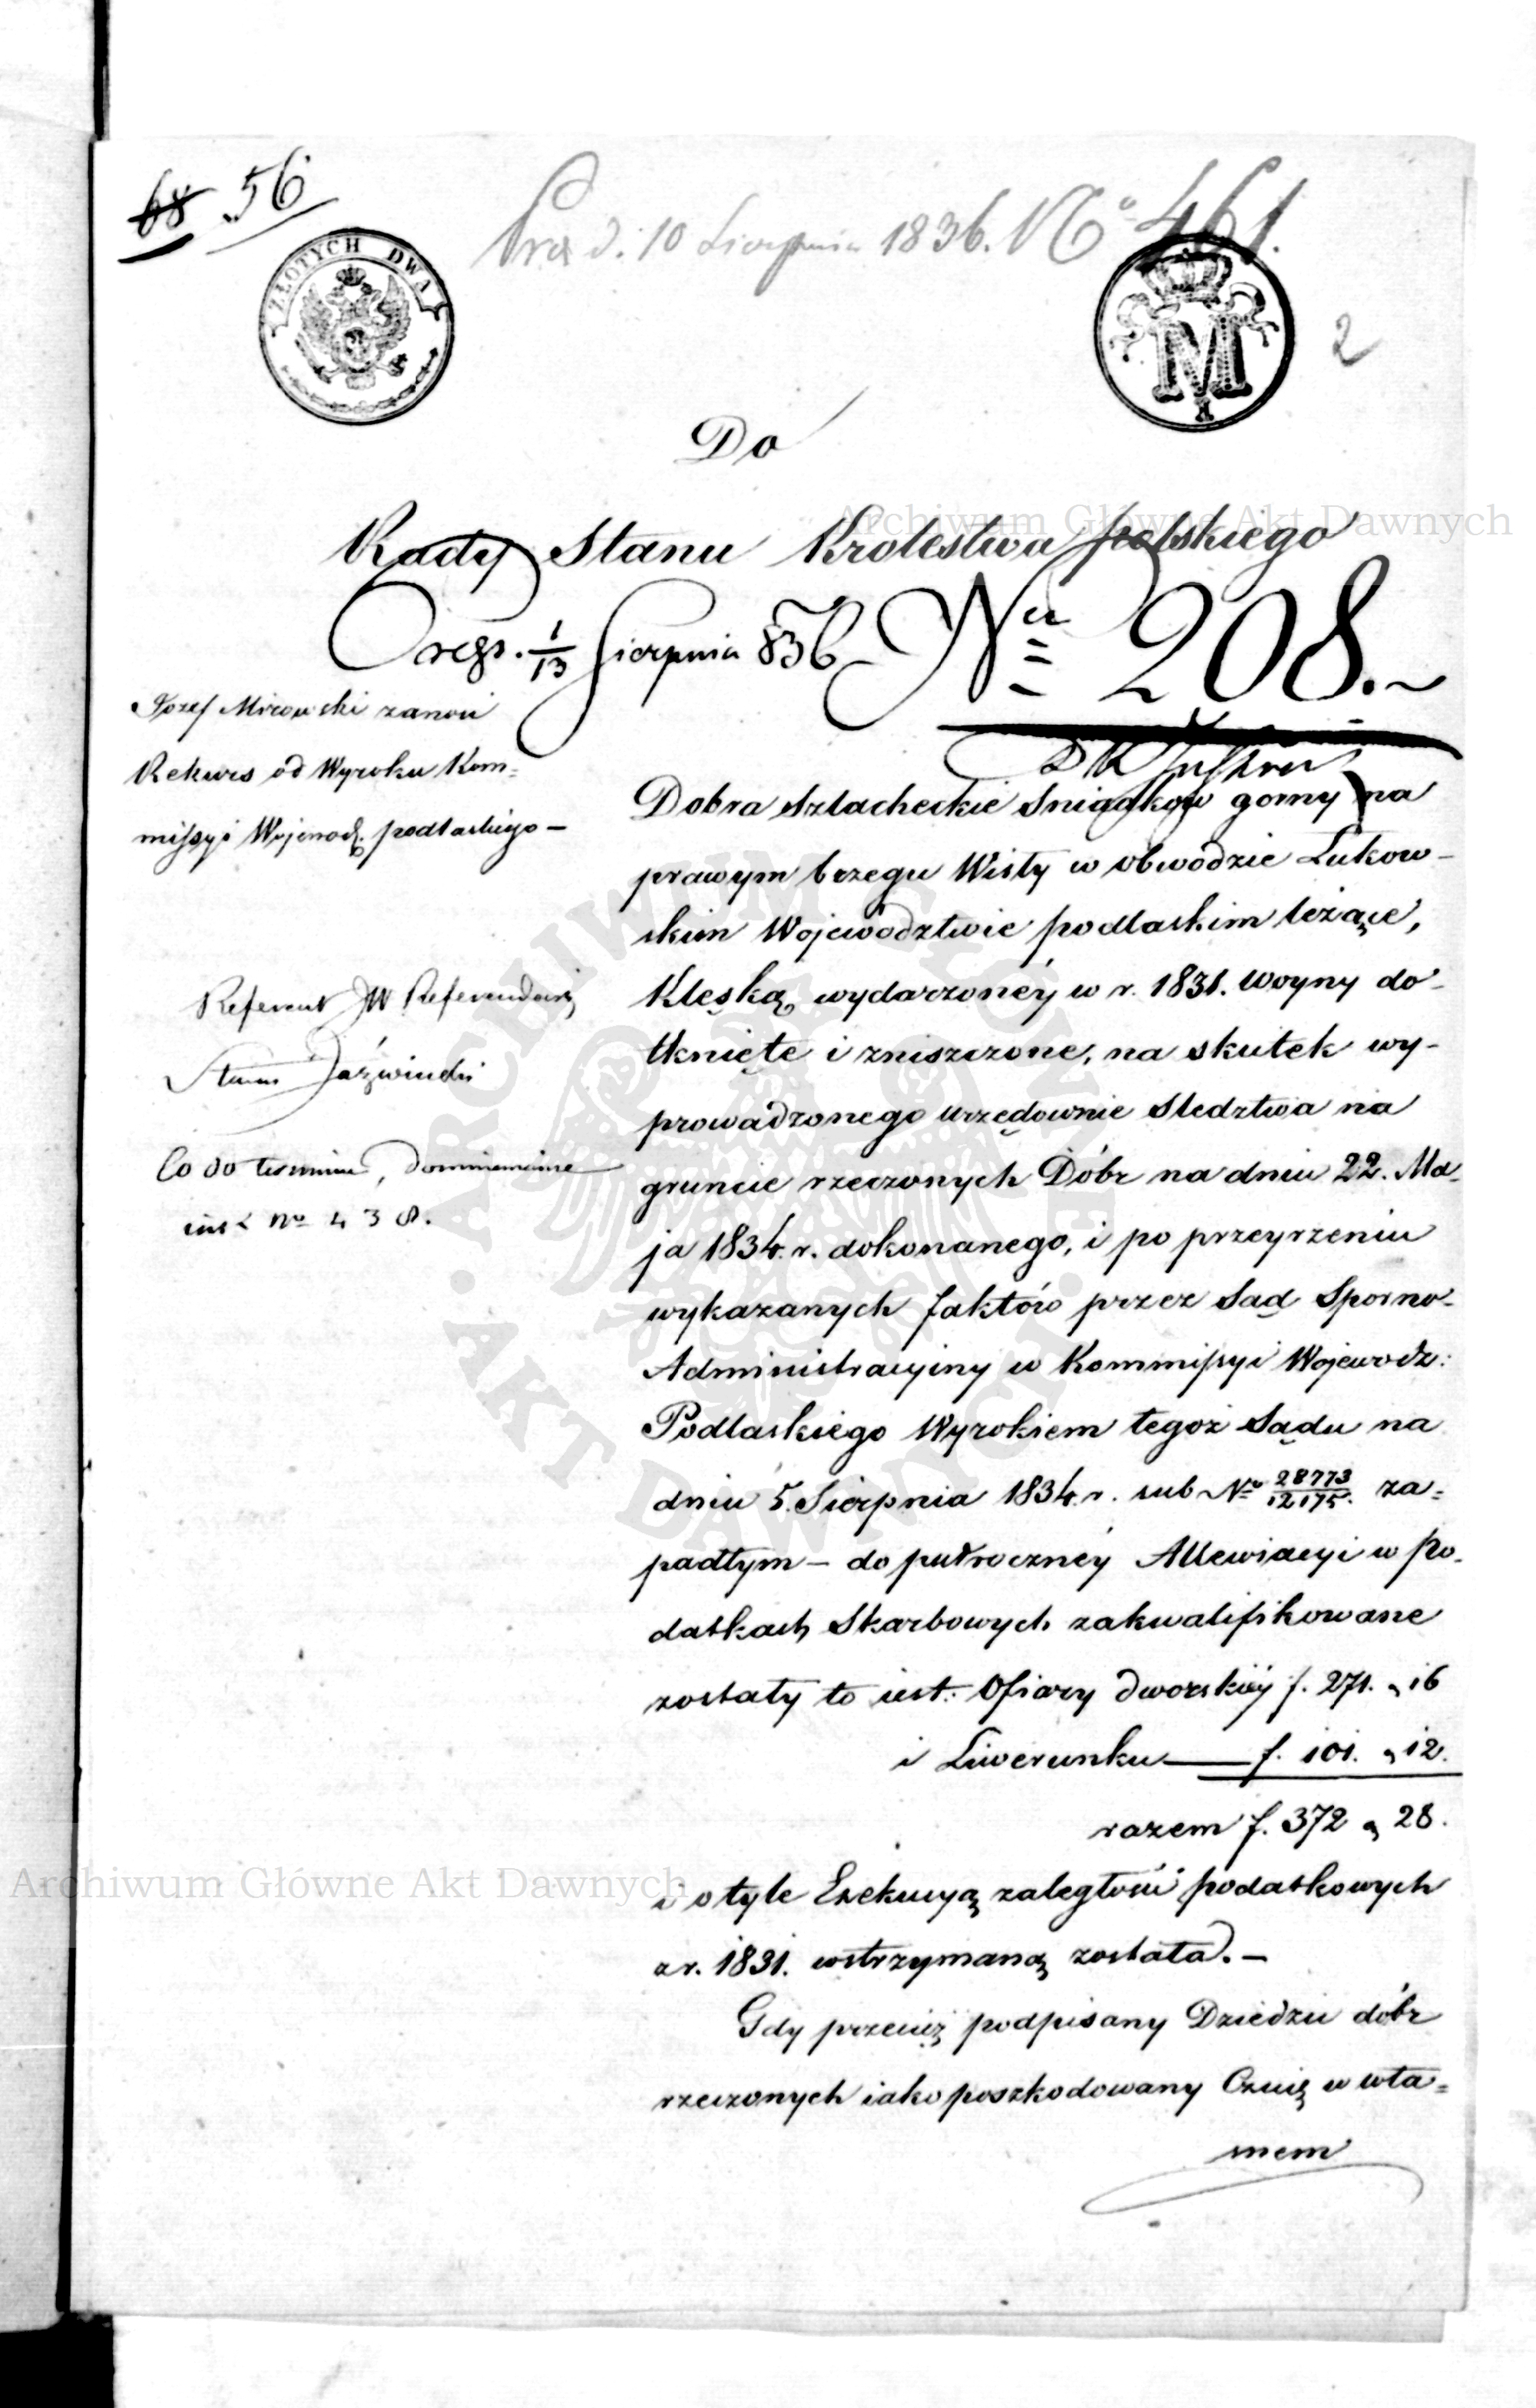 68 56
Prez d. 10 Sierpnia 1836. No 461.
ZŁOTYCH DWA
M
2
Do
Rady Stanu Krolestwa polskiego
1/13 Sierpnia 836 Nr 208.
Jozef Mirowski zanosi
Rekurs od Wyroku Kom=
missyi Wojewod. podlaskiego –
Referent JW Referendarz
Stanu Jaźwiński
Co do terminu, domniemanie
iust No 438.
Dobra szlacheckie Sniadkow gorny na
prawym brzegu Wisły w obwodzie Łukow-
skim Wojewodztwie podlaskim leżące,
Klęską wydarzonéy w r. 1831. woyny do-
tknięte i zniszczone, na skutek wy-
prowadzonego urzędownie sledztwa na
gruncie rzeczonych Dóbr na dniu 22. Ma-
ja 1834. r. dokonanego, i po przeyrzeniu
wykazanych faktów przez Sąd Sporno-
Administracyiny w Kommissyi Wojewodz:
Podlaskiego Wyrokiem tegoż Sądu na
dniu 5. Sierpnia 1834. r. sub No 28773/12175. za=
padłym – do pułrocznéy Allewiacyi w po-
datkach Skarbowych zakwalifikowane
zostały to iest: Ofiary dworskiéy f. 271. „ 16
i Liwerunku f. 101. „ 12.
razem f. 372 „ 28.
i o tyle Exekucyą zaległości podatkowych
z r. 1831. wstrzymaną została. –
Gdy przecież podpisany Dziedzic dóbr
rzeczonych iako poszkodowany Czuię w wła=
snem
Archiwum Główne Akt Dawnych
Archiwum Główne Akt Dawnych
ARCHIWUM GŁÓWNE
AKT DAWNYCH